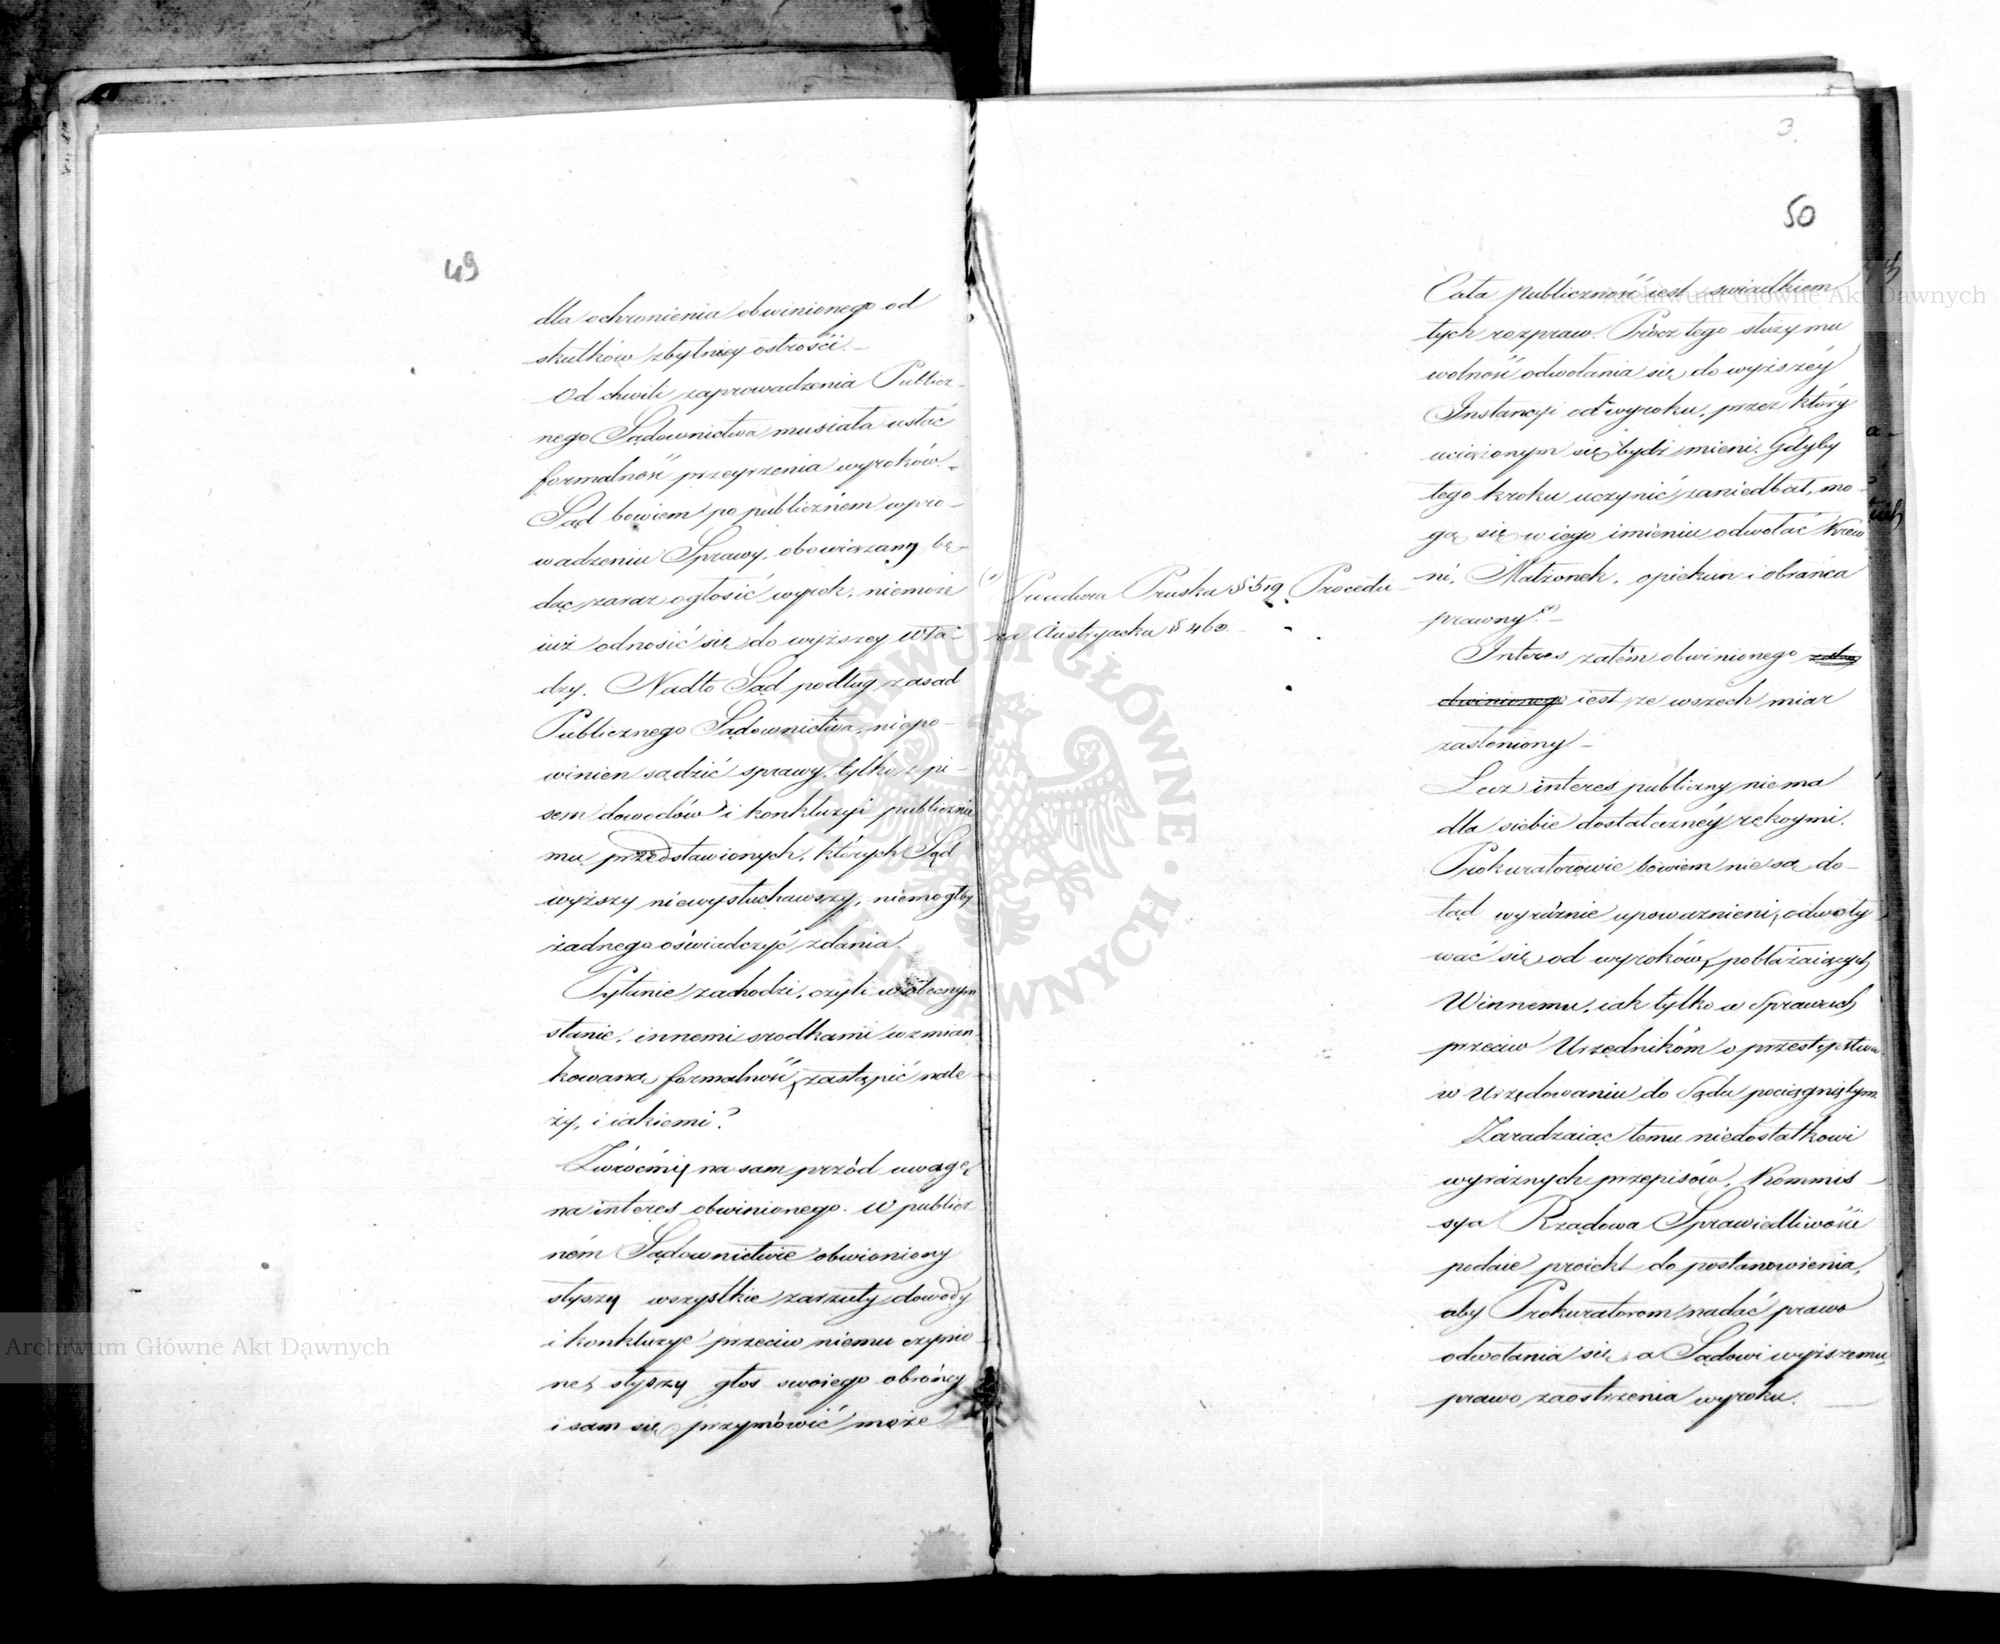 49
dla ochronienia obwinionego od
skutków zbytniey ostrości._
Od chwili zaprowadzenia Publicz_
nego Sądownictwa musiała ustać
formalność przeyrzenia wyroków._
Sąd bowiem po publiczném wpro_
wadzeniu Sprawy, obowiązany bę_
dąc zaraz ogłosić wyrok, niemoże
iuż odnosić się do wyższey wła_
dzy. Nadto Sąd podług zasad
Publicznego Sądownictwa, niepo_
winien sądzić sprawy tylko z pi_
sem dowodów i konkluzyi publicznie
mu przedstawionych, których Sąd
wyższy niewysłuchawszy, niemogłby
żadnego oświadczyć zdania.
Pytanie zachodzi, czyli w obecnym
stanie, innemi srodkami wzmian_
kowaną formalność zastąpić nale_
ży, i iakiemi?
Zwróćmy na sam przód uwagę
na interes obwinionego. W publicz
ném Sądownictwie obwioniony
słyszy wszystkie zarzuty dowody
i konkluzye przeciw niemu czynio_
ne, słyszy głos swoiego obróńcy
i sam się przymówić może
3.
50
Cała publiczność iest swiadkiem
tych rozpraw. Prócz tego służy mu
wolność odwołania się do wyższéy
Instancyi od wyroku, przez który
uciążonym się bydź mieni. Gdyby
tego kroku uczynić zaniedbał, mo_
gą się w iego imieniu odwołać Krew
ni, Małżonek, opiekun i obrańca
prawny.(*)_
(*) Procedura Pruska § 519. Procedu_
ra Austryacka § 463.
Interes zatém obwinionego
obwinionego iest ze wszech miar
zasłoniony_
Lecz interes publiczny niema
dla siebie dostatecznéy rękoymi.
Prokuratorowie bowiem nie są do_
tąd wyráźnie upoważnieni, odwoły
wać się od wyroków, pobłażaiących
Winnemu, iak tylko w Sprawach
przeciw Urzędnikóm o przestępstwa
w Urzędowaniu do Sądu pociągniętym
Zaradzaiąc temu niedostatkowi
wyráźnych przepisów, Kommis_
sya Rządowa Sprawiedliwości
podaie proiekt do postanowienia,
aby Prokuratorom nadać prawo
odwołania się, a Sądowi wyższemu,
prawo zaostrzenia wyroku. _
Archiwum Główne Akt Dawnych
Archiwum Główne Akt Dawnych
ARCHIWUM GŁÓWNE AKT DAWNYCH